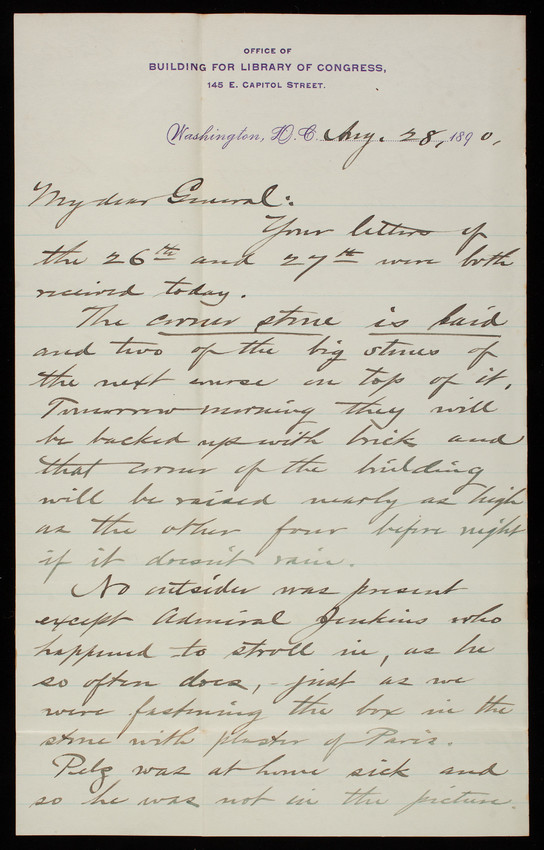 OFFICE OF
BUILDING FOR LIBRARY OF CONGRESS,
145 E. CAPITOL STREET.
Washington, D.C. Aug. 28, 1890,
My dear General:
Your letters of
the 26th and 27th were both
received today.
The corner stone is laid
and two of the big stones of
the next course on top of it.
Tomorrow morning they will
be backed up with brick and
that corner of the building
will be raised nearly as high
as the other four before night
if it doesn't rain.
No outsider was present
except Admiral Jenkins who
happened to stroll in, as he
so often does, - just as we
were fastening the box in the
stone with plaster of Paris.
Pelz was at home sick and
so he was not in the picture.